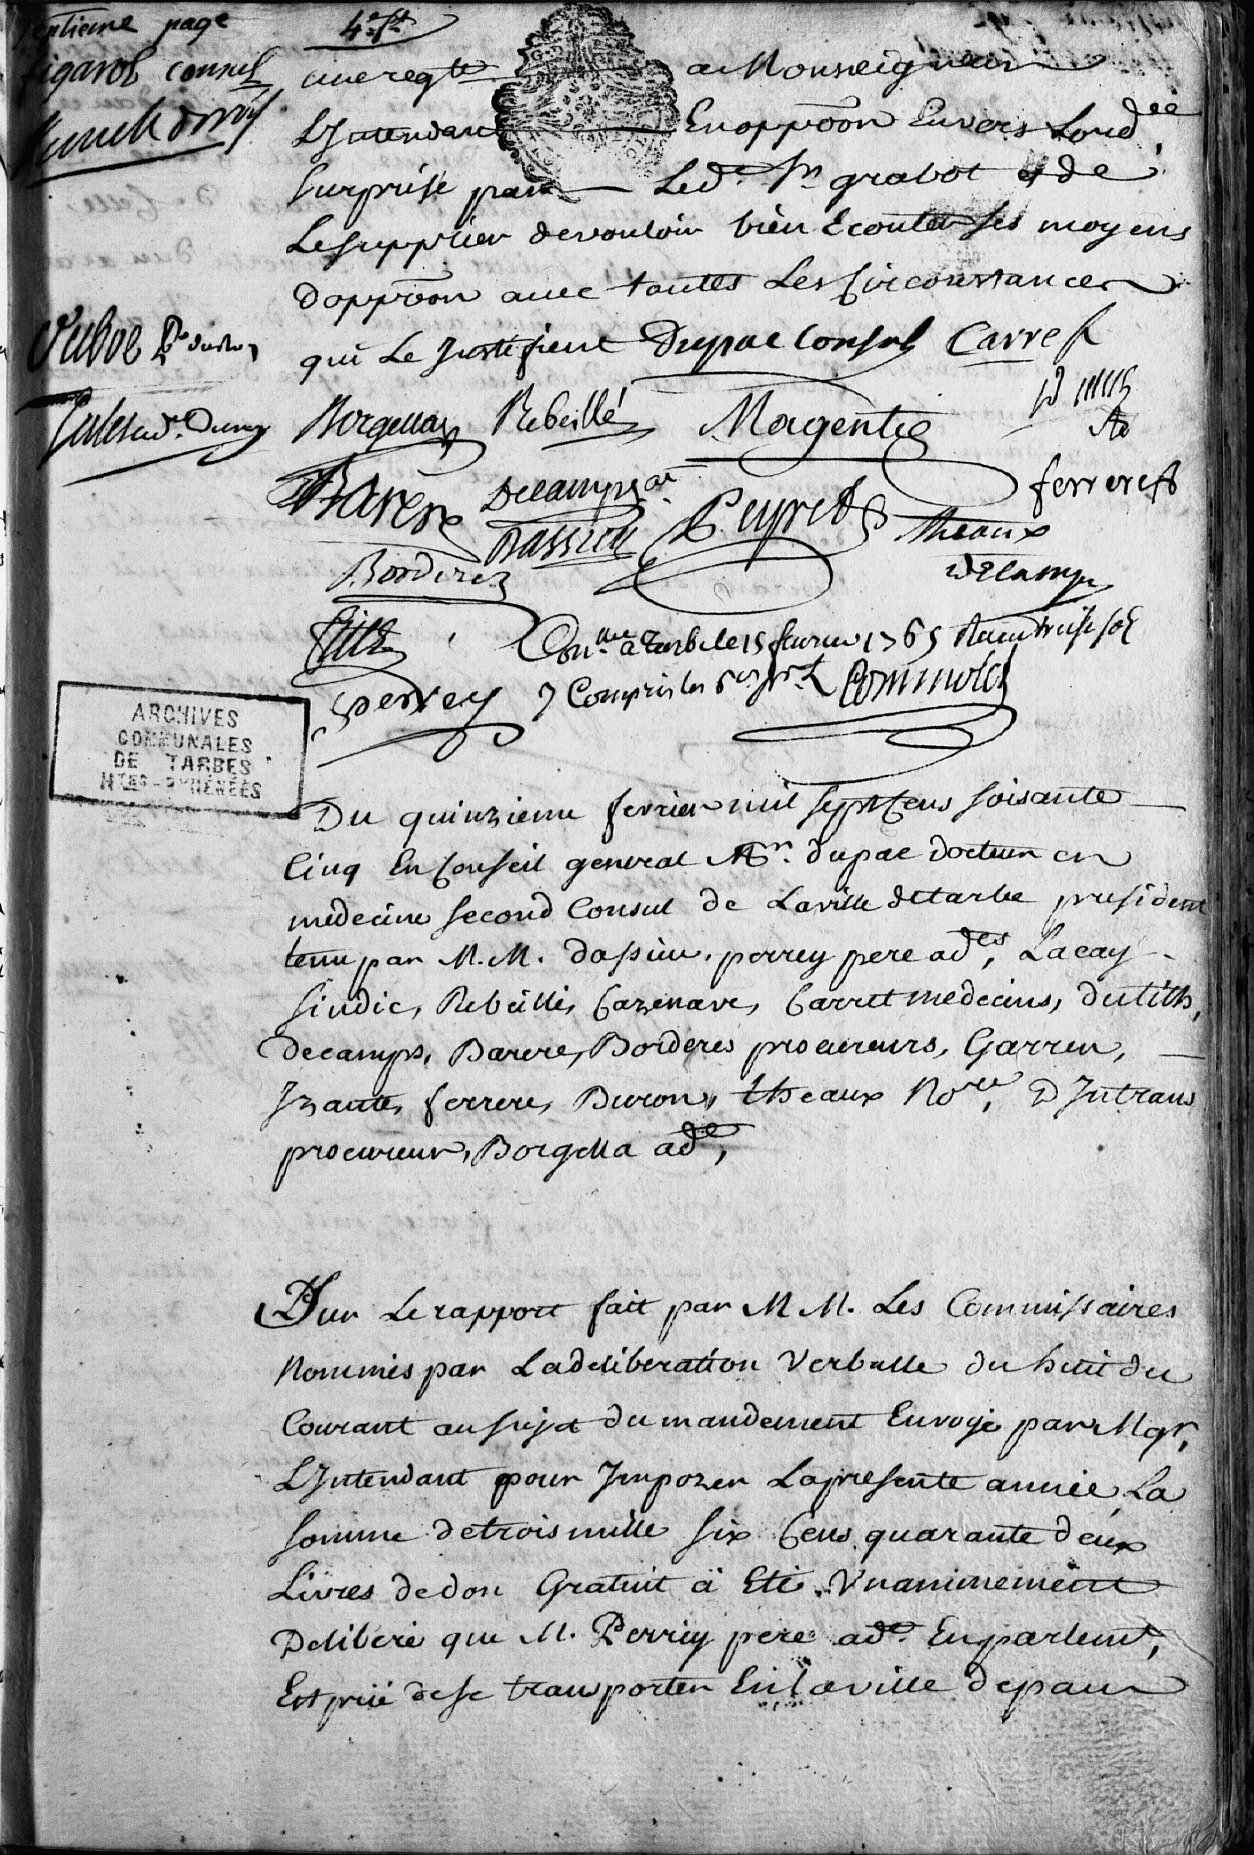 page
4e ft
figarol consul
une regte a Monseigneur
L'Intendant En oppoon Envers Lordce
Surprise par Led. Sr grabot & de
Le supplier de vouloir bien Ecouter ses moyens
d'oppoon avec toutes Les Circonstances
qui Le Justifient Dupac Consul Carret
Borgella Rebeillé Magentie
Barère Decamps at Peyret ferrere
Dassieu theaux
Borderes Decamps
Conlle a Tarbe le 15 fevrier 1765
perrey
ARCHIVES
COMMUNALES
DE TARBES
HTES-PYRÉNÉES
Du quinzieme fevrier mil sept Cens soisante
Cinq En Conseil general Mr. dupac docteur en
medecine second Consul de La ville de tarbe president
tenu par M.M. dassieu, perrey pere ades, Lacay
sindic, Rebeillé, Cazenave, Carret medecins, dutilh,
decamps, Barere, Borderes procureurs, Garren,
Izante, ferrere, Duron, theaux Nores, D'Intrans
procureur, Borgella ade,
Sur Le rapport fait par M M. Les Commissaires
Nommés par La deliberation Verballe du huit du
Courant au sujet du mandement Envoyé par Mgr,
L'Intendant pour Impozer La presente année La
somme de trois mille six Cens quarante deux
Livres de don Gratuit à Eté Unanimement
Deliberé que M. Perrey pere ade. En parlemt,
Est prié de se transporter En la ville de pau